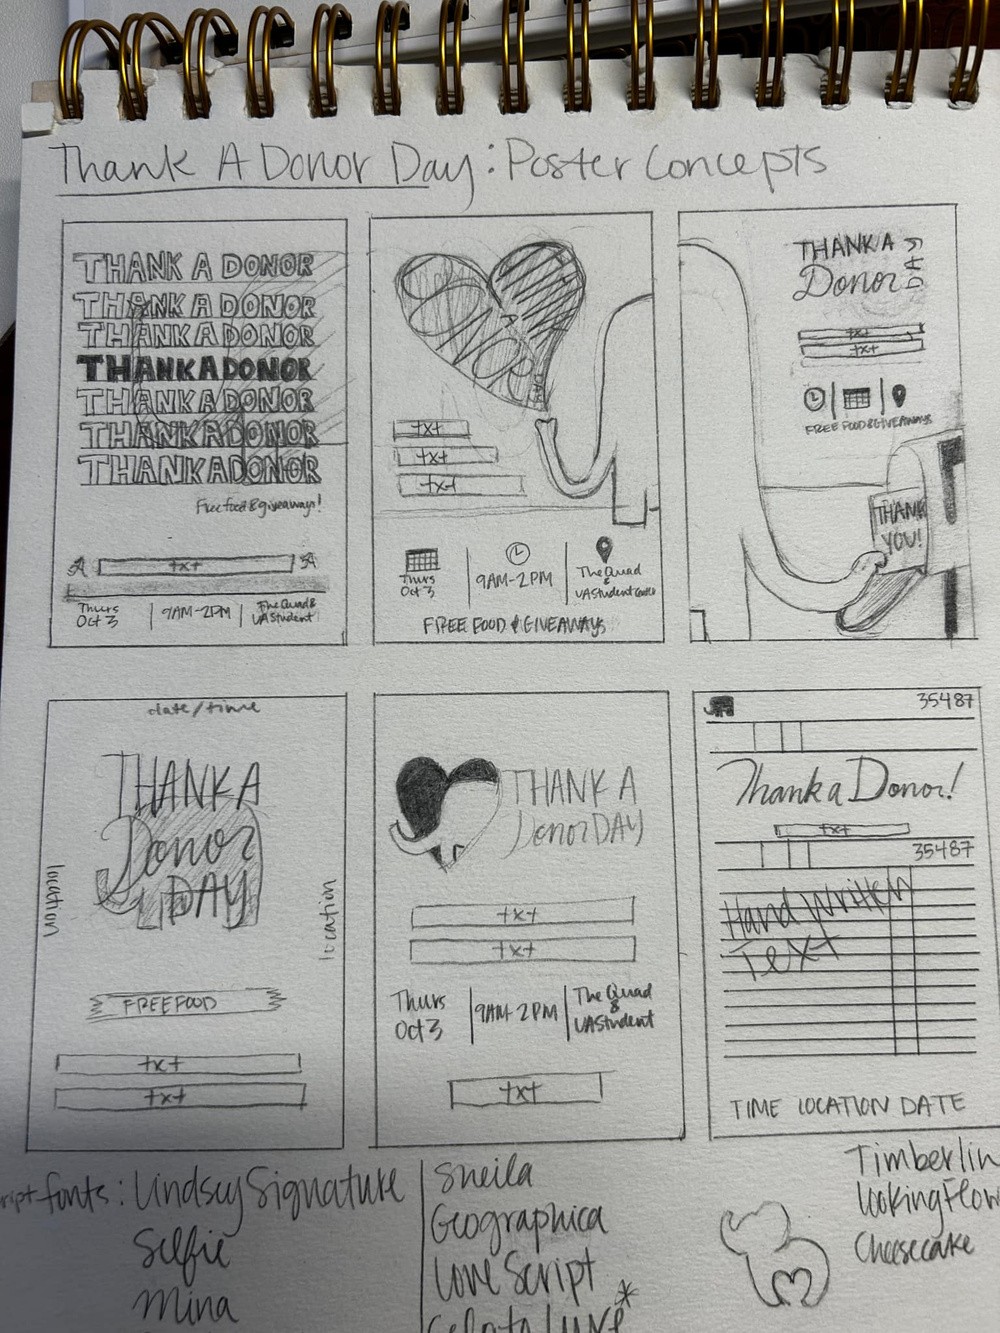 Thank A Donor Day: Poster Concepts
THANK A DONOR
THANK A DONOR
THANK A DONOR
THANK A DONOR
THANK A DONOR
THANK A DONOR
THANK A DONOR
Free food & giveaways!
A
txt
A
Thurs
Oct 3
9AM-2PM
The Quad &
UA Student
DONOR
DAY
txt
txt
txt
Thurs
Oct 3
9AM-2PM
The Quad
&
UA Student Center
FREE FOOD & GIVEAWAYS
THANK A
Donor
DAY
txt
txt
FREE FOOD & GIVEAWAYS
THANK
YOU!
date/time
THANK A
Donor
DAY
location
location
FREE FOOD
txt
txt
THANK A
Donor DAY
txt
txt
Thurs
Oct 3
9AM-2PM
The Quad
&
UA Student
txt
35487
Thank a Donor!
txt
35487
Hand written
Text
TIME LOCATION DATE
ript fonts: Lindsey Signature
Selfie
Mina
Sheila
Geographica
Love Script
Gelato Luxe *
Timberlin
Looking Flow
Cheesecake